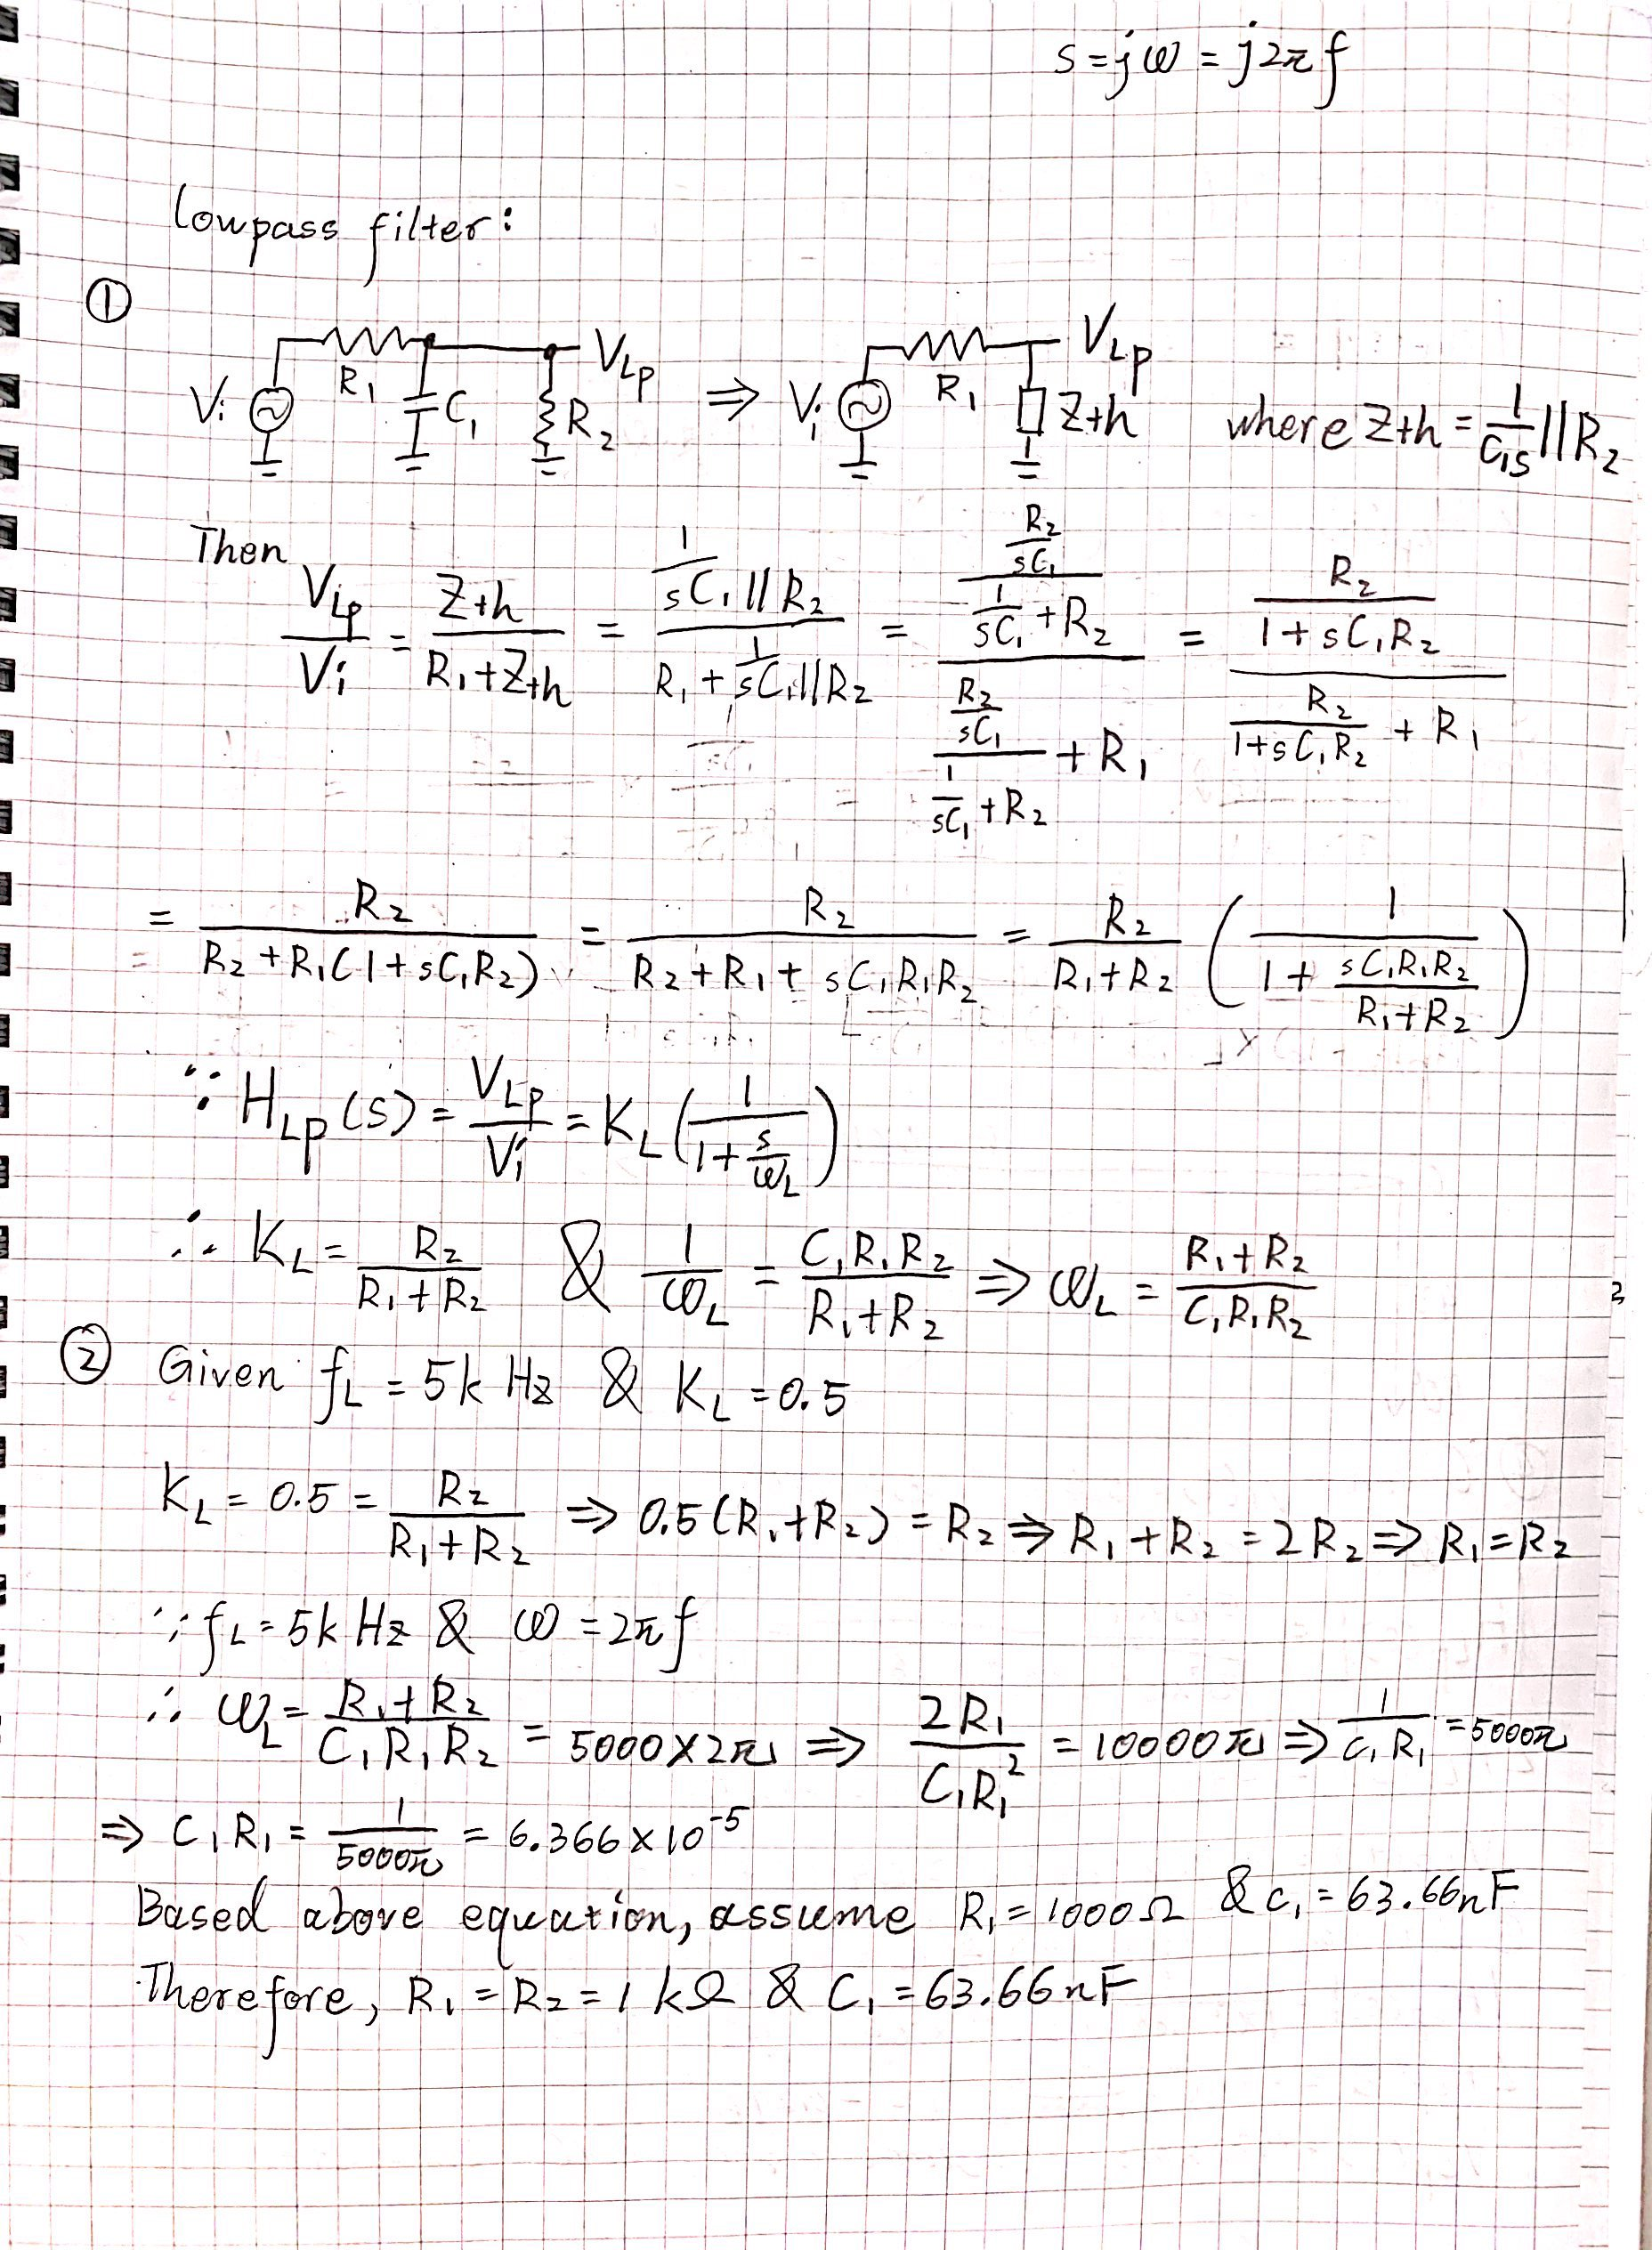 s = jω = j2πf
Lowpass filter:
①
Vi R1 C1 R2 VLp ⇒ Vi R1 Zth VLp where Zth = 1/(C1s) || R2
Then
VLp/Vi = Zth/(R1+Zth) = (1/(sC1) || R2)/(R1 + 1/(sC1) || R2) = ((R2/(sC1))/(1/(sC1) + R2))/((R2/(sC1))/(1/(sC1) + R2) + R1) = (R2/(1+sC1R2))/(R2/(1+sC1R2) + R1)
= R2/(R2+R1(1+sC1R2)) = R2/(R2+R1+sC1R1R2) = R2/(R1+R2) (1/(1+ sC1R1R2/(R1+R2)))
∵ HLp(s) = VLp/Vi = KL (1/(1+ s/ωL))
∴ KL = R2/(R1+R2) & 1/ωL = C1R1R2/(R1+R2) ⇒ ωL = (R1+R2)/(C1R1R2)
② Given fL = 5k Hz & KL = 0.5
KL = 0.5 = R2/(R1+R2) ⇒ 0.5(R1+R2) = R2 ⇒ R1+R2 = 2R2 ⇒ R1=R2
∵ fL = 5k Hz & ω = 2πf
∴ ωL = (R1+R2)/(C1R1R2) = 5000×2π ⇒ 2R1/(C1R1²) = 10000π ⇒ 1/(C1R1) = 5000π
⇒ C1R1 = 1/(5000π) = 6.366×10⁻⁵
Based above equation, assume R1 = 1000Ω & C1 = 63.66nF
Therefore, R1 = R2 = 1kΩ & C1 = 63.66nF